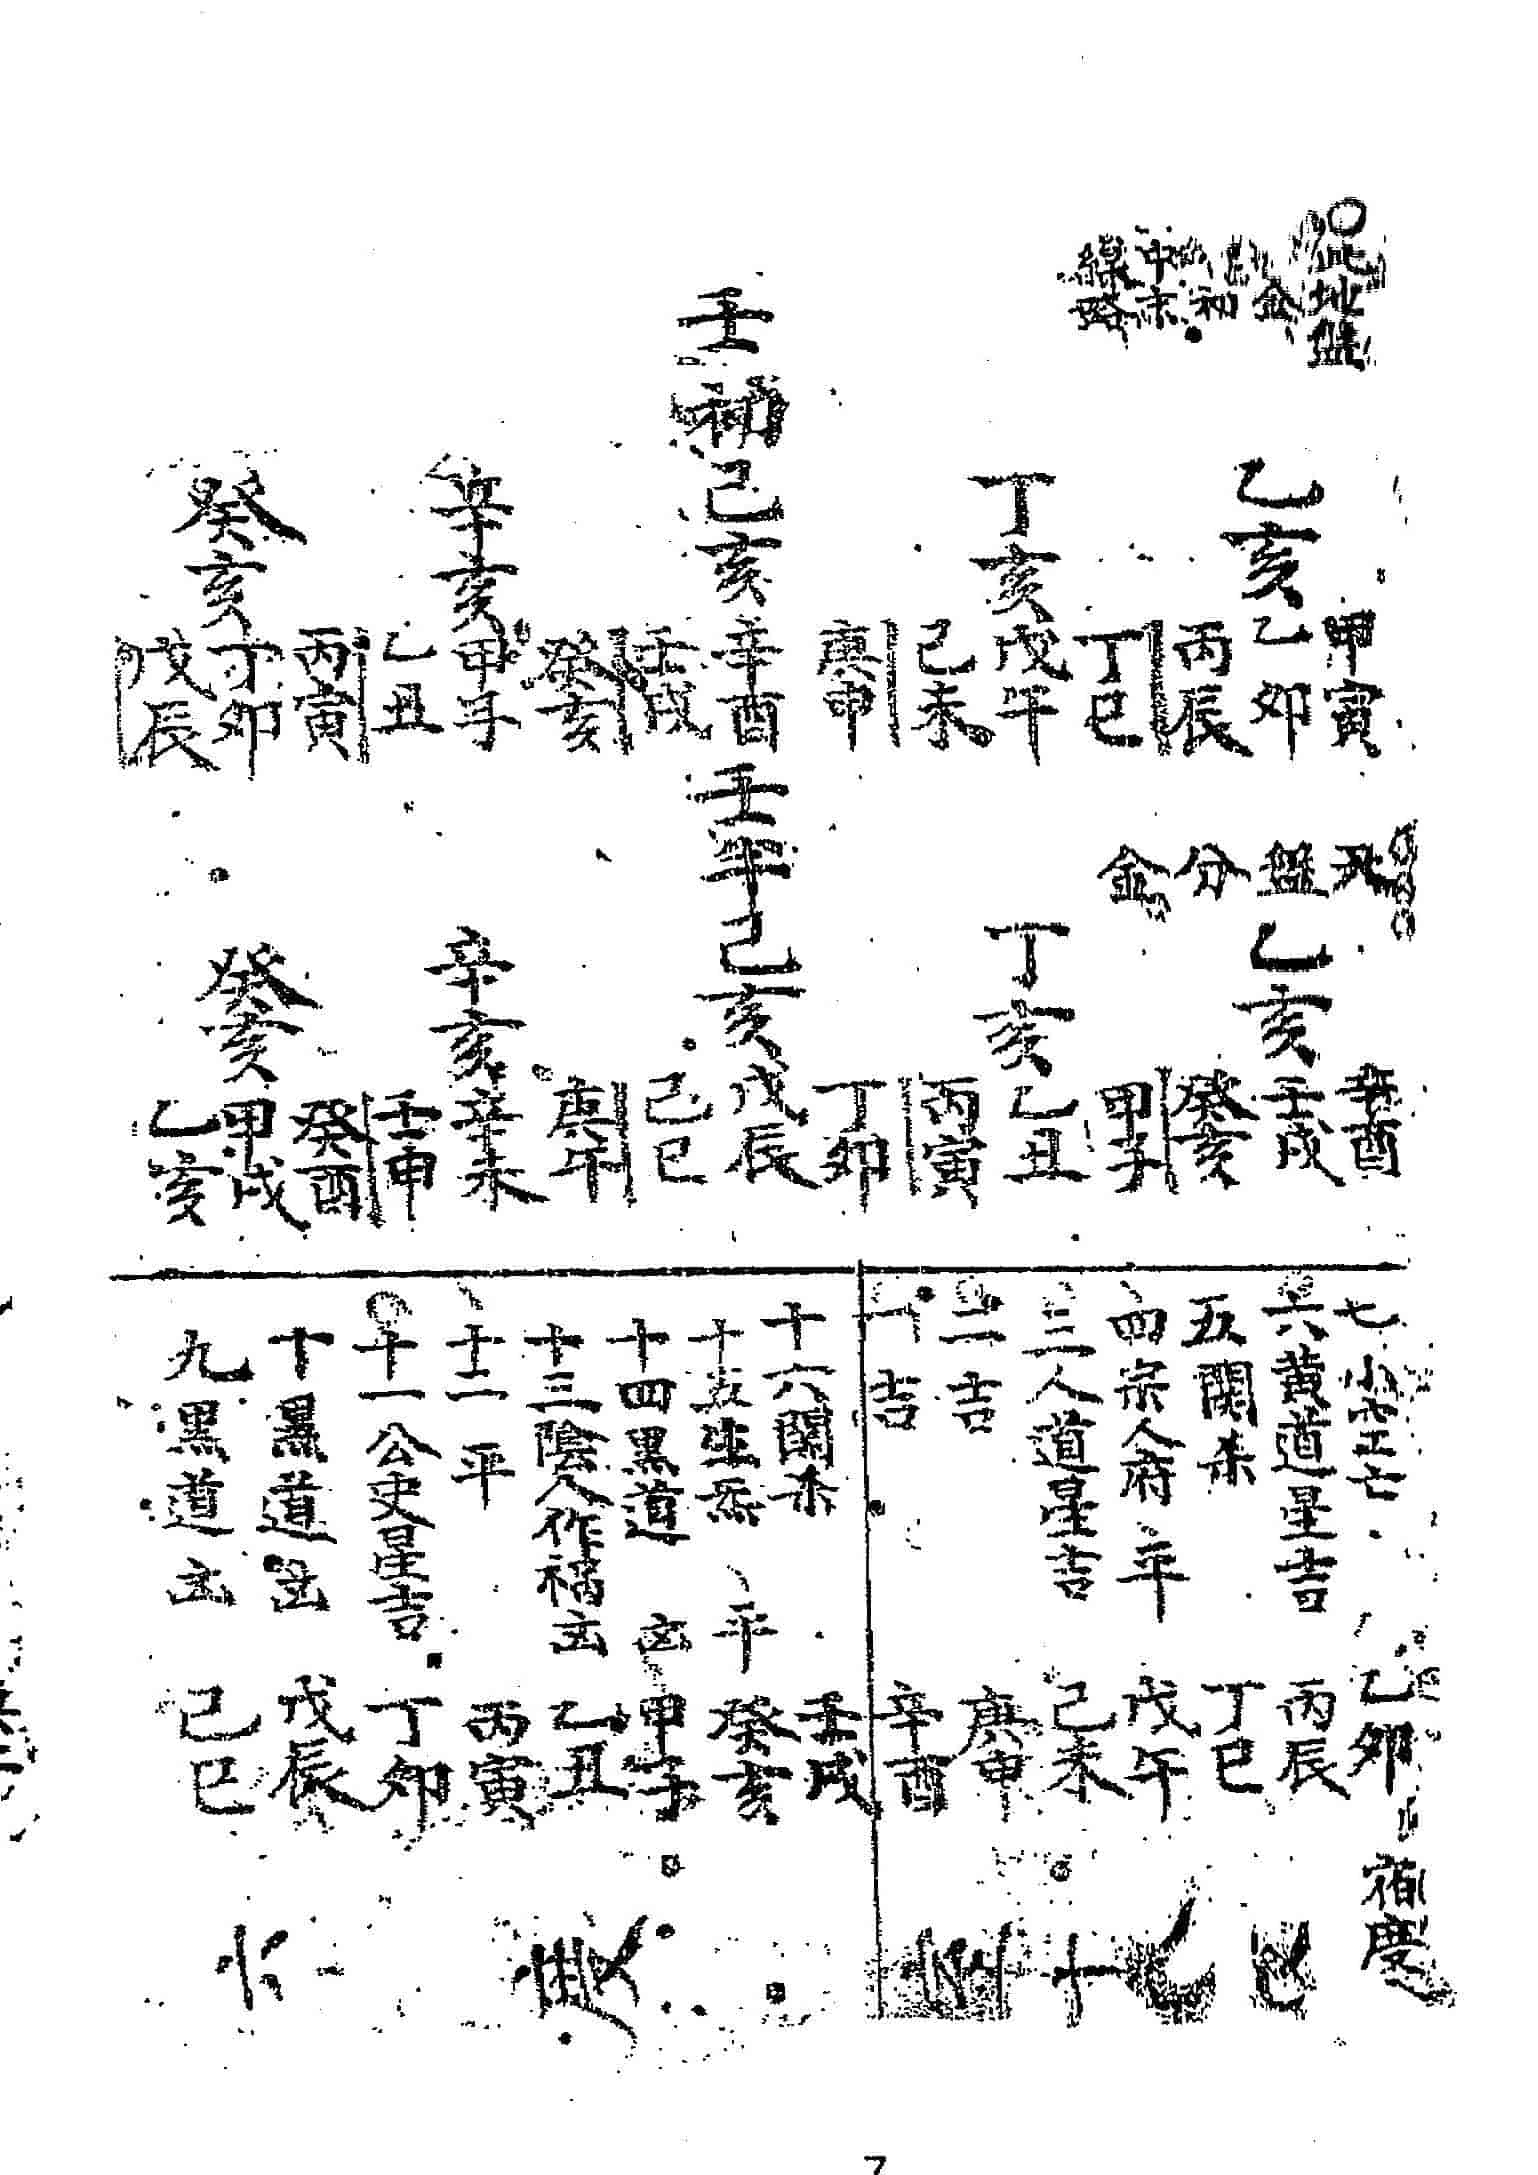 地盤
金
初
中末
線路
壬初
乙亥
丁亥
己亥
辛亥
癸亥
甲寅
乙卯
丙辰
丁巳
戊午
己未
庚申
辛酉
壬戌
癸亥
甲子
乙丑
丙寅
丁卯
戊辰
盤
分
金
壬半
乙亥
丁亥
己亥
辛亥
癸亥
辛酉
壬戌
癸亥
甲子
乙丑
丙寅
丁卯
戊辰
己巳
庚午
辛未
壬申
癸酉
甲戌
乙亥
七小空亡 乙卯
六黄道星吉 丙辰
五関杀 丁巳
四 人府平 戊午
三人道星吉 己未
二吉 庚申
一吉 辛酉
十六関杀 壬戌
十五生炁平 癸亥
十四黒道凶 甲子
十三陰人作禍凶 乙丑
十二平 丙寅
十一公吏星吉 丁卯
十黒道凶 戊辰
九黒道凶 己巳
慶
7